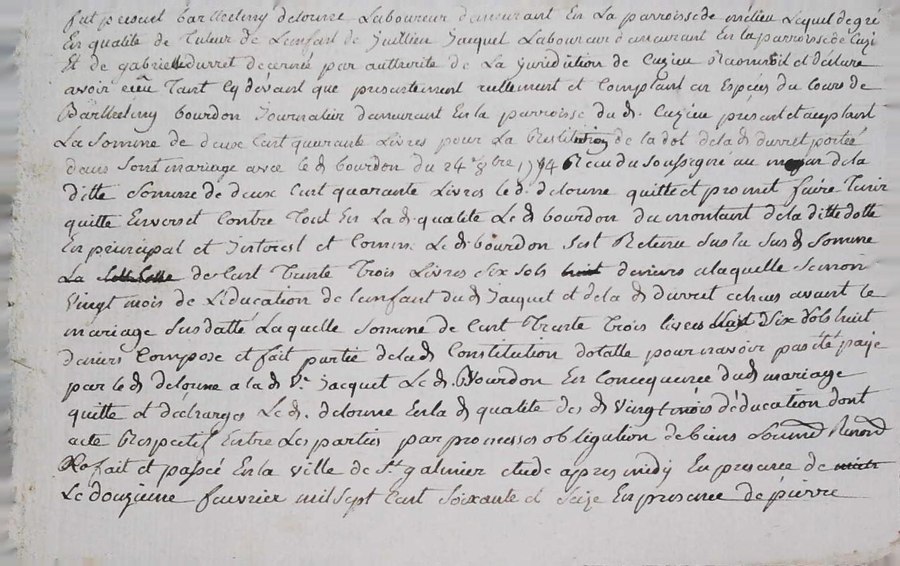 fut présent barthelemy delorme Laboureur demeurant En La parroisse de mélieu Lequel de gré
En qualité de Tuteur de Lenfant de jullien jacquet Laboureur demeurant en la parroisse de Cuzi
Et de gabriele durret decerné par authorité de La juridiction de Cuzieu Raconnoit et declare
avoir eieu Tant Cy devant que présentement reellement et Comptant en Espèces du Cours de
Barthelemy bourdon journalier demeurant En la parroisse du d. Cuzieu présent et acceptant
La Somme de deux Cent quarante Livres pour La Restitution de la dot de la d durret portée
dans Sont mariage avec le d bourdon du 24e 8bre 1774 Recu du Soussigné au moyen de la
ditte Somme de deux Cent quarante Livres le d. delorme quitte et promet faire Tenir
quitte Envers et Contre Tout En La d qualité Le d bourdon du montant de la ditte dotte
En principal et Interest et Comme Le d bourdon sest Retenu Sur la Sus d Somme
La de Cent Trente Trois Livres Six Sols deniers a laquelle Se mon
Vingt mois de L'education de l'enfant du d jacquet et de la d durret echeus avant le
mariage Sus datté Laquelle Somme de Cent Trente Trois livres Six Sols huit
deniers Compose et fait partie de la d Constitution dotalle pour navoir pas été payé
par le d delorme a la d Ve jacquet Le d Bourdon En Concequence du d mariage
quitte et décharge Le d. delorme En la d qualité des d Vingt mois d'éducation dont
acte Respectif Entre Les parties par promesses obligation de biens Soumis Renon
fait et passé En la Ville de St galmier etude apres midy En presence de
Le douzieme fevrier mil Sept Cent Soixante et Seize En presence de pierre